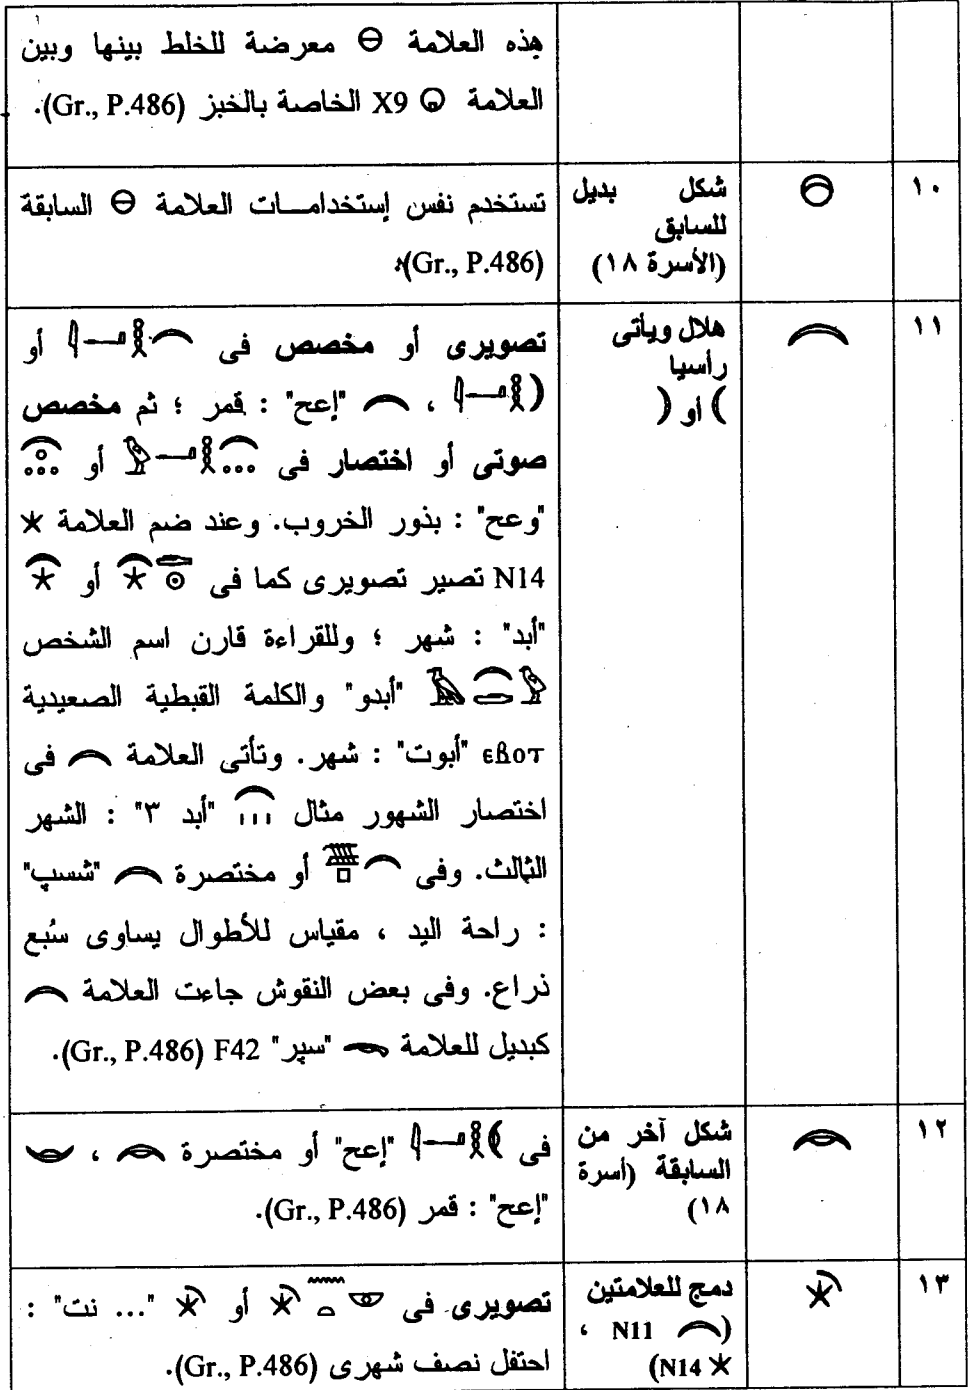 هذه العلامة 𓐍 معرضة للخلط بينها وبين
العلامة 𓏖 X9 الخاصة بالخبز (Gr., P.486).
١٠
شكل بديل
للسابق
(الأسرة ١٨)
تستخدم نفس إستخدامات العلامة 𓐍 السابقة
(Gr., P.486).
١١
𓇹
هلال ويأتى
رأسيا
) أو (
تصويرى أو مخصص فى 𓇋𓂝𓎛𓇹 أو
𓇋𓂝𓎛) ، 𓇹 "إعح" : قمر ؛ ثم مخصص
صوتى أو اختصار فى 𓅱𓂝𓎛𓇹 أو 𓇹
"وعح" : بذور الخروب. وعند ضم العلامة 𓇼
N14 تصير تصويرى كما فى 𓇹𓇼𓂧𓇳 أو 𓇹𓇼
"أبد" : شهر ؛ وللقراءة قارن اسم الشخص
𓇹𓂧𓅱 "أبدو" والكلمة القبطية الصعيدية
ⲉⲃⲟⲧ "أبوت" : شهر. وتأتى العلامة 𓇹 فى
اختصار الشهور مثال 𓇹𓏼 "أبد ٣" : الشهر
الثالث. وفى 𓊪𓇹 أو مختصرة 𓇹 "شسپ"
: راحة اليد ، مقياس للأطوال يساوى سُبع
ذراع. وفى بعض النقوش جاءت العلامة 𓇹
كبديل للعلامة 𓄴 "سپر" F42 (Gr., P.486).
١٢
𓇺
شكل آخر من
السابقة (أسرة
١٨)
فى 𓇋𓂝𓎛 "إعح" أو مختصرة 𓇺 ،
"إعح" : قمر (Gr., P.486).
١٣
𓇻
دمج للعلامتين
(𓇹 N11 ،
𓇼 N14)
تصويرى فى 𓈖𓏏𓇻 أو 𓇻 "... نت" :
احتفل نصف شهرى (Gr., P.486).